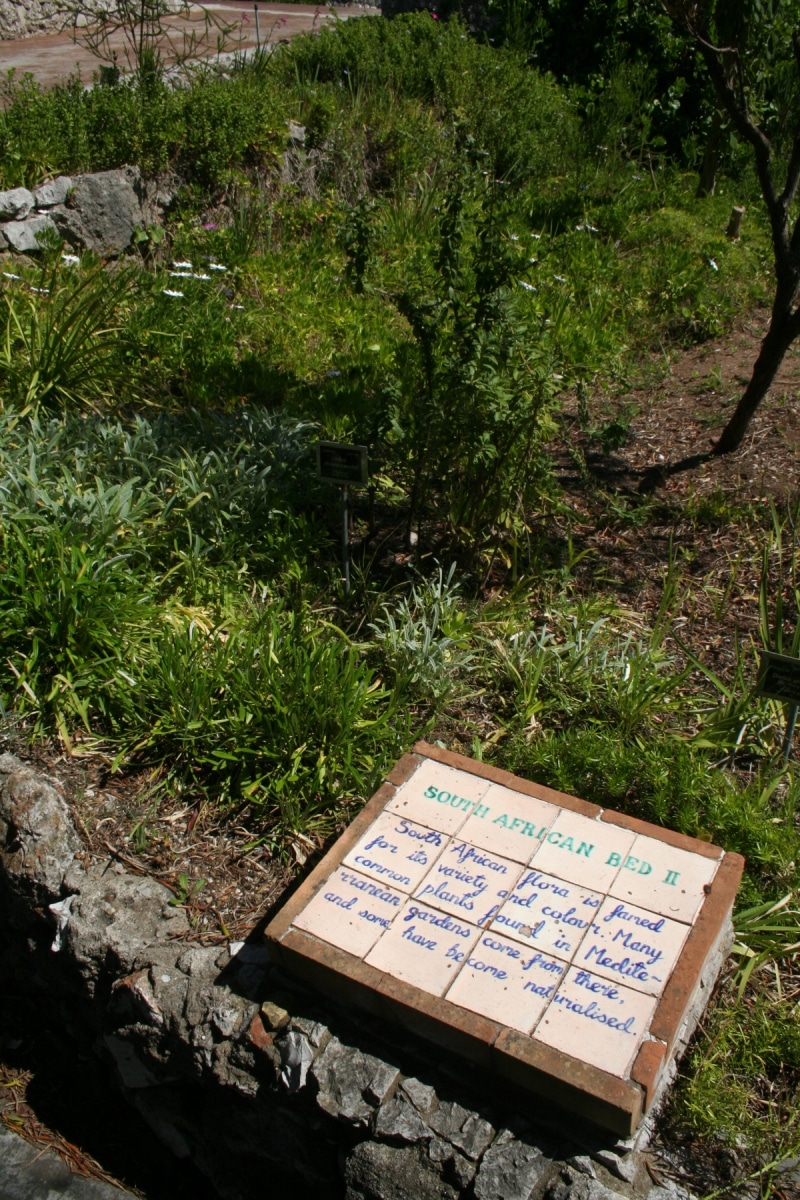 SOUTH AFRICAN BED II
South African flora is famed
for its variety and colour. Many
common plants found in Medite-
rranean gardens come from there,
and some have become naturalised.